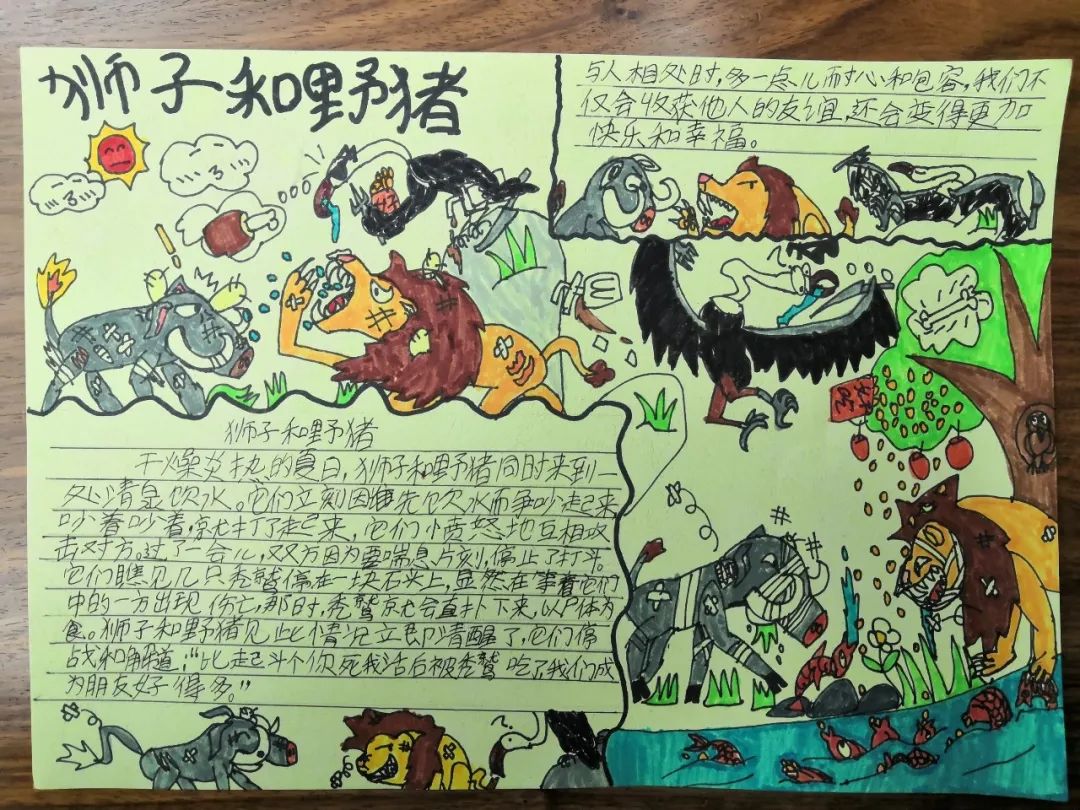 狮子和野猪
与人相处时,多一点儿耐心和包容,我们不
仅会收获他人的友谊,还会变得更加
快乐和幸福。
狮子和野猪
干燥炎热的夏日,狮子和野猪同时来到一
处清泉饮水。它们立刻因谁先饮水而争吵起来
吵着吵着,就打了起来,它们愤怒地互相攻
击对方。过了一会儿,双方因为要喘息片刻,停止了打斗。
它们瞧见几只秃鹫停在一块石头上,显然在等着它们
中的一方出现伤亡,那时,秃鹫就会直扑下来,以尸体为
食。狮子和野猪见此情况立即清醒了,它们停
战和解道:“比起斗个你死我活后被秃鹫吃了,我们成
为朋友好得多。”